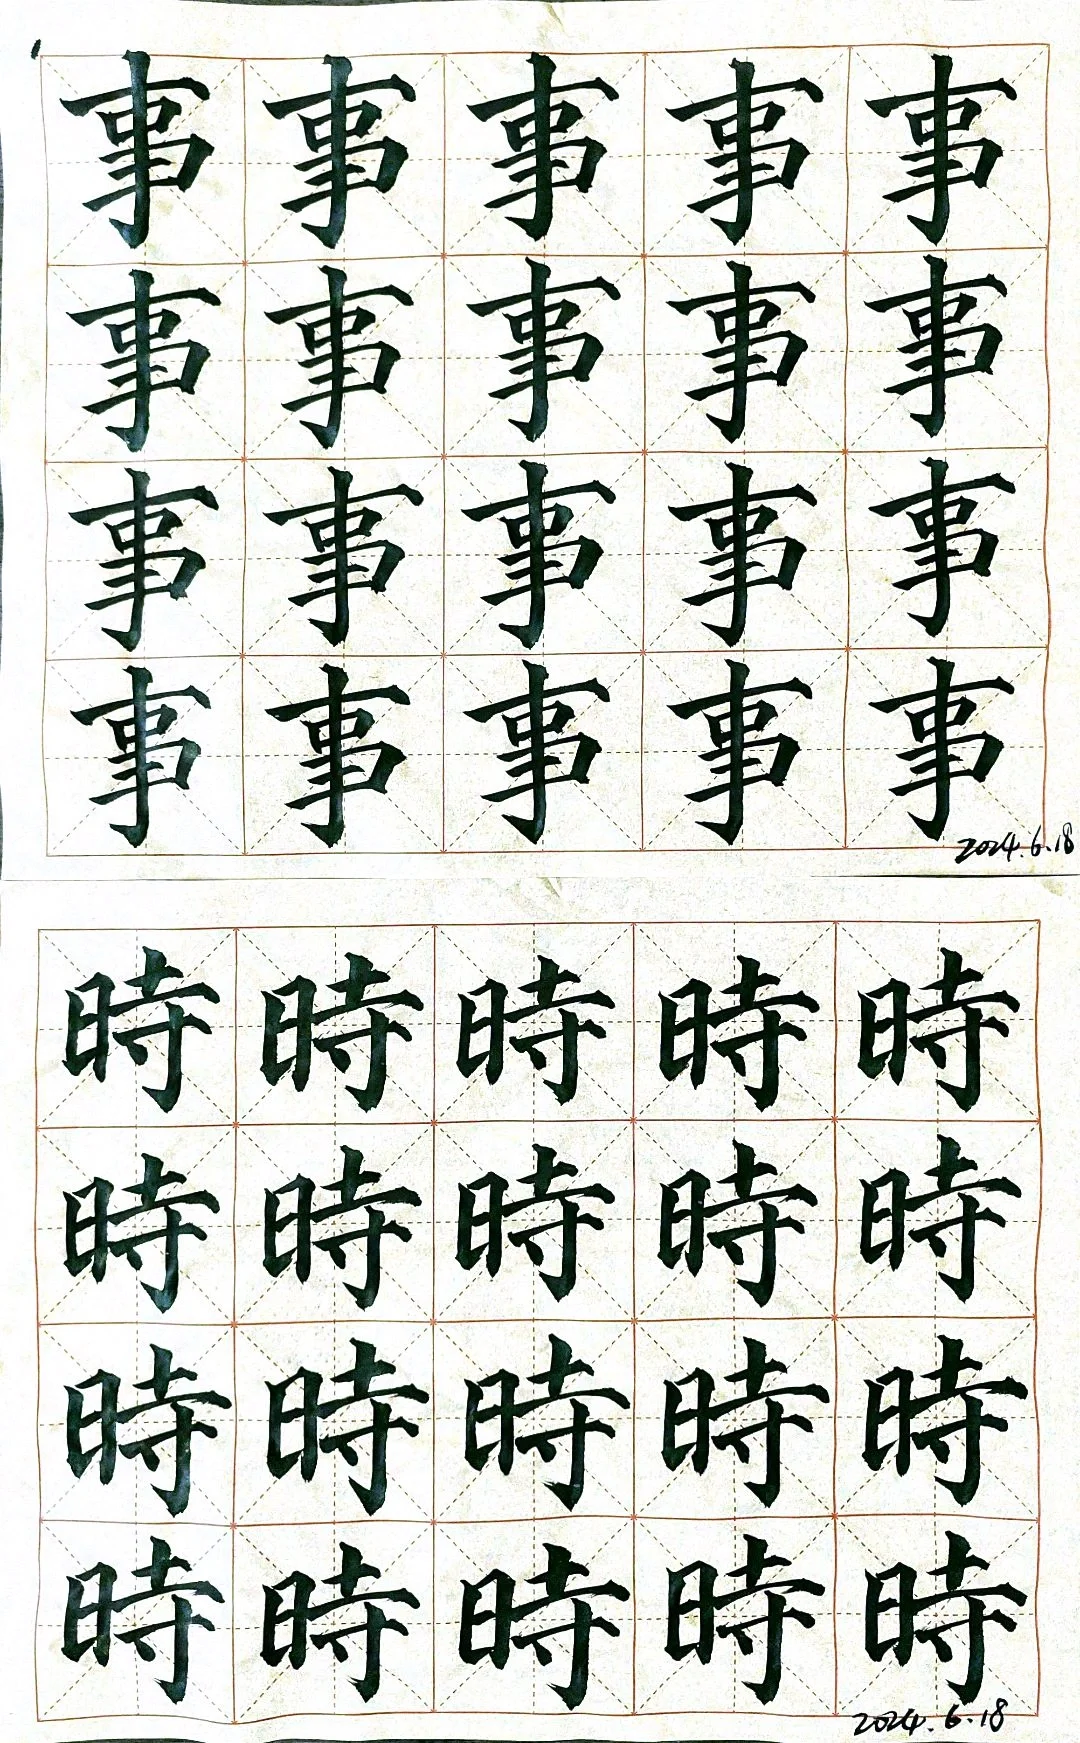 事事事事事
事事事事事
事事事事事
事事事事事
2024.6.18
時時時時時
時時時時時
時時時時時
時時時時時
2024.6.18